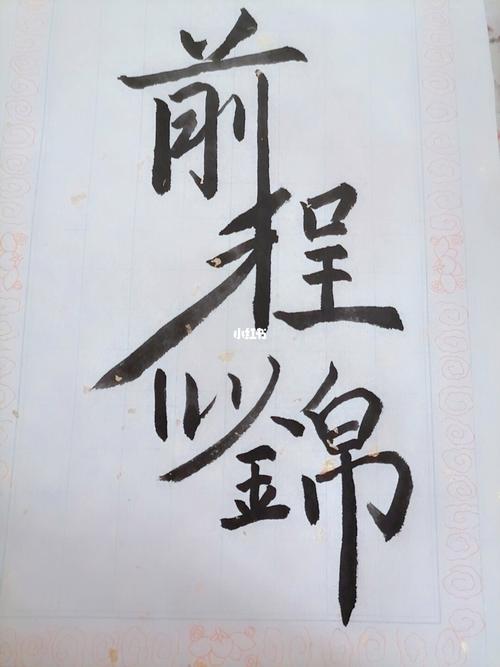 前程似錦
小红书